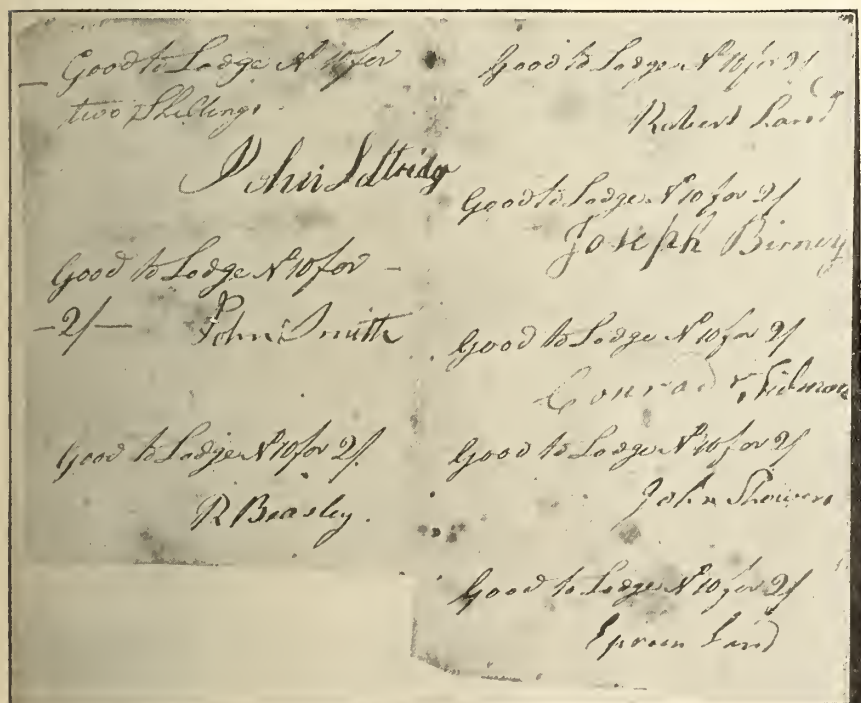 — Good to Lodge Nº 10 for
two Shillings.
John
Good to Lodge Nº 10 for —
— 2/ — John Smith
Good to Lodge Nº 10 for 2/.
R Beasley.
Good to Lodge Nº 10 for 2/
Robert Land
Good to Lodge Nº 10 for 2/
Joseph Birney
Good to Lodge Nº 10 for 2/
Conrad
Good to Lodge Nº 10 for 2/
John Showers
Good to Lodge Nº 10 for 2/
Land